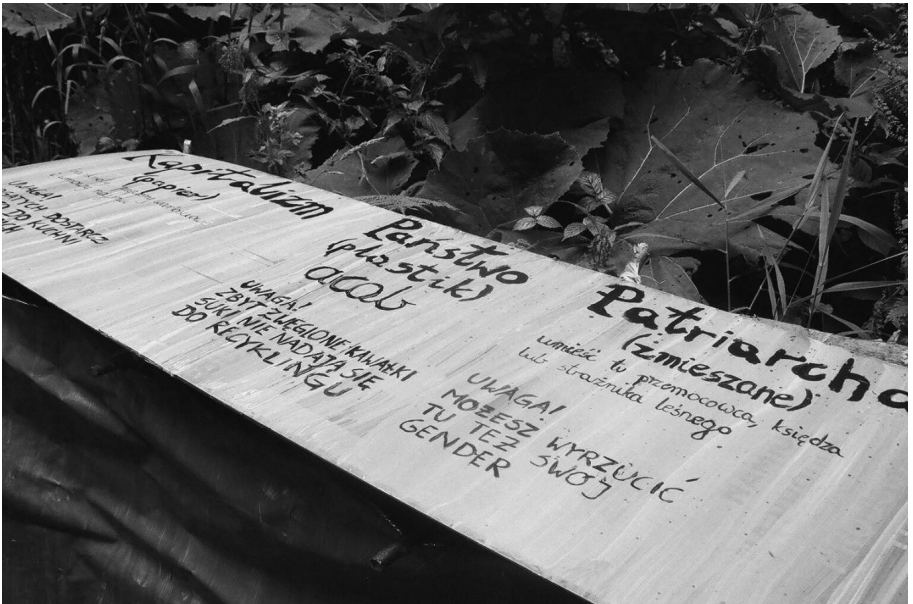 Kapitalizm
(papier)
UWAGA!
DOSTARCZ
DO KUCHNI
Państwo
(plastik)
acab
UWAGA!
ZBYT ZWĘGLONE KAWAŁKI
SUKI NIE NADAJĄ SIĘ
DO RECYKLINGU
Patriarcha
(zmieszane)
umieść tu przemocowca, księdza
lub strażnika leśnego
UWAGA!
MOŻESZ WYRZUCIĆ
TU TEŻ SWÓJ
GENDER